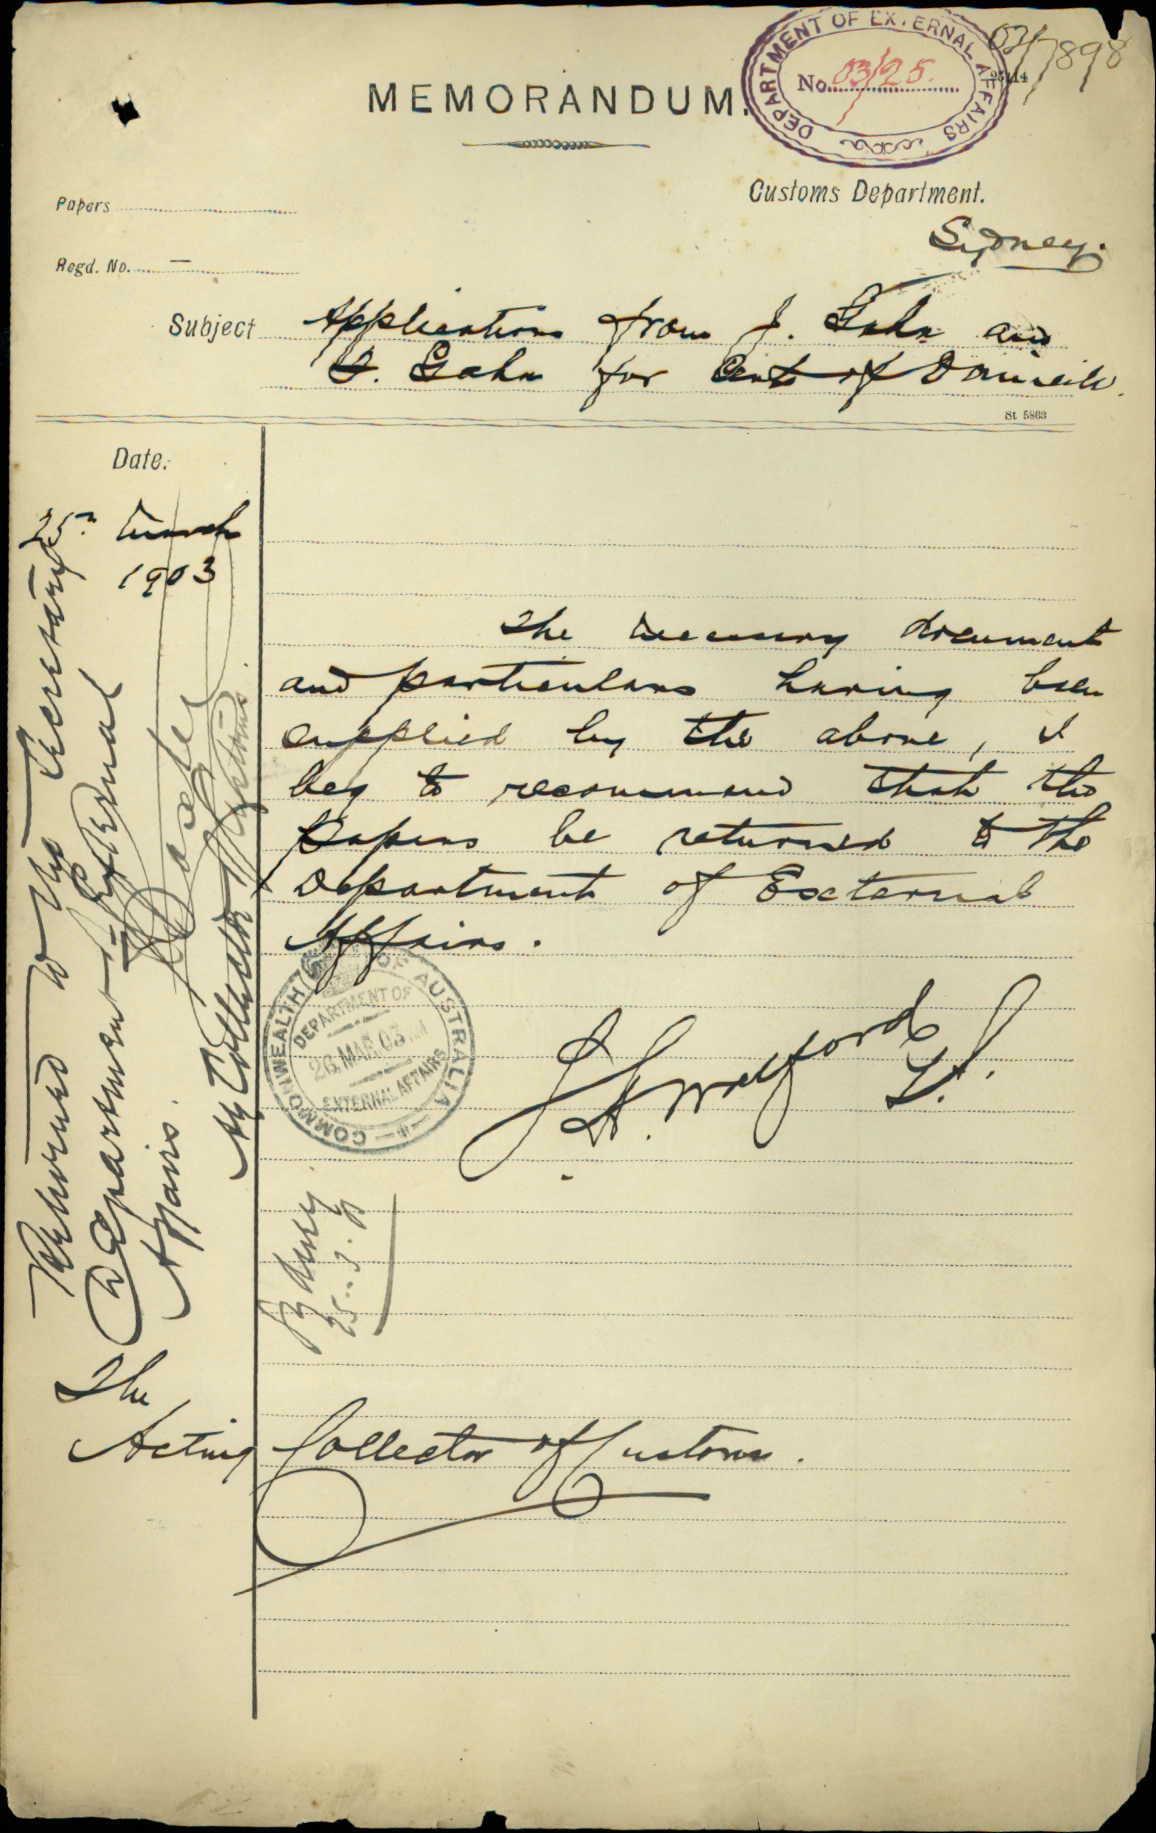 DEPARTMENT OF EXTERNAL AFFAIRS
No. 03/25.
03/7898
MEMORANDUM.
Customs Department.
Sydney.
Papers
Regd. No. —
Subject Applications from J. Gahn and
G. Gahn for Certs of Domicile.
St. 5863
Date.
25th March
1903
The necessary documents
and particulars having been
supplied by the above, I
beg to recommend that the
papers be returned to the
Department of External
Affairs.
COMMONWEALTH OF AUSTRALIA
DEPARTMENT OF
26. MAR. 03
EXTERNAL AFFAIRS
The
Acting Collector of Customs.
Returned to the Secretary
Department of External
Affairs.
Ag Collector of Customs.
Sydney.
25.3.03